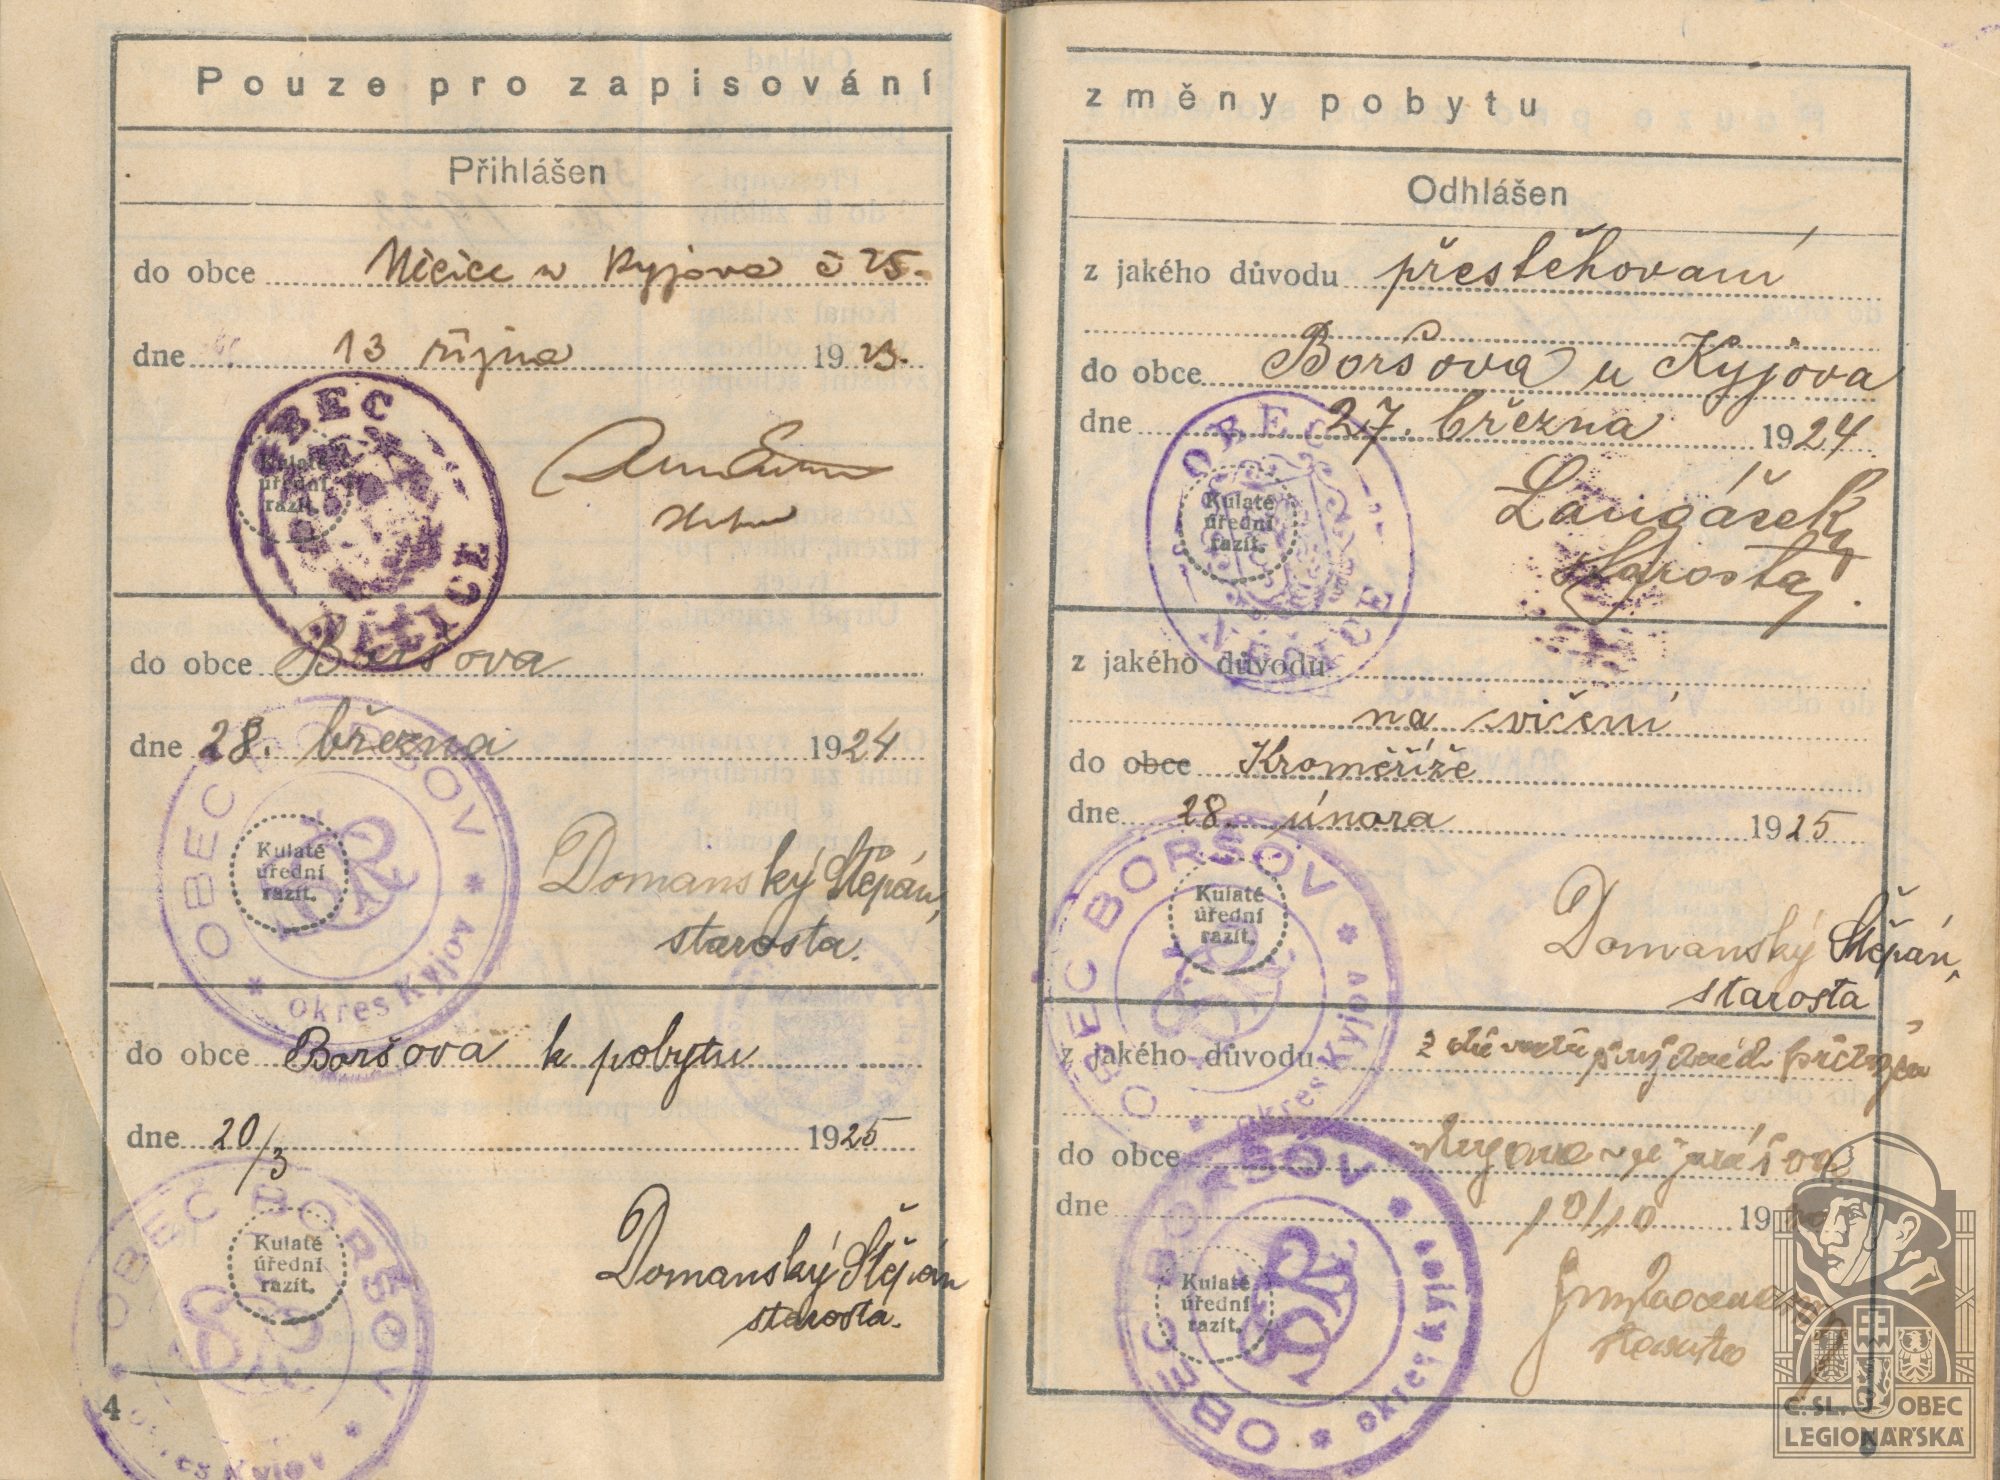 Pouze pro zapisování
Přihlášen
do obce u Kyjova č 25.
dne 13 října 1923.
OBEC
Kulaté
úřední
razít.
do obce Boršova
dne 28. března 1924
OBEC BORŠOV
okres Kyjov
Kulaté
úřední
razít.
Domanský Štěpán,
starosta.
do obce Boršova k pobytu
dne 20/3 1925
OBEC BORŠOV
okres Kyjov
Kulaté
úřední
razít.
Domanský Štěpán
starosta.
4
změny pobytu
Odhlášen
z jakého důvodu přestěhovaní
do obce Boršova u Kyjova
dne 27. března 1924
OBEC
Kulaté
úřední
razít.
starosta
z jakého důvodu
na cvičení
do obce Kroměříže
dne 28. února 1925
OBEC BORŠOV
okres Kyjov
Kulaté
úřední
razít.
Domanský Štěpán,
starosta
z jakého důvodu
do obce
dne 10/10 19
OBEC BORŠOV
okres Kyjov
Kulaté
úřední
razít.
starosta
Č. SL. OBEC
LEGIONÁŘSKÁ